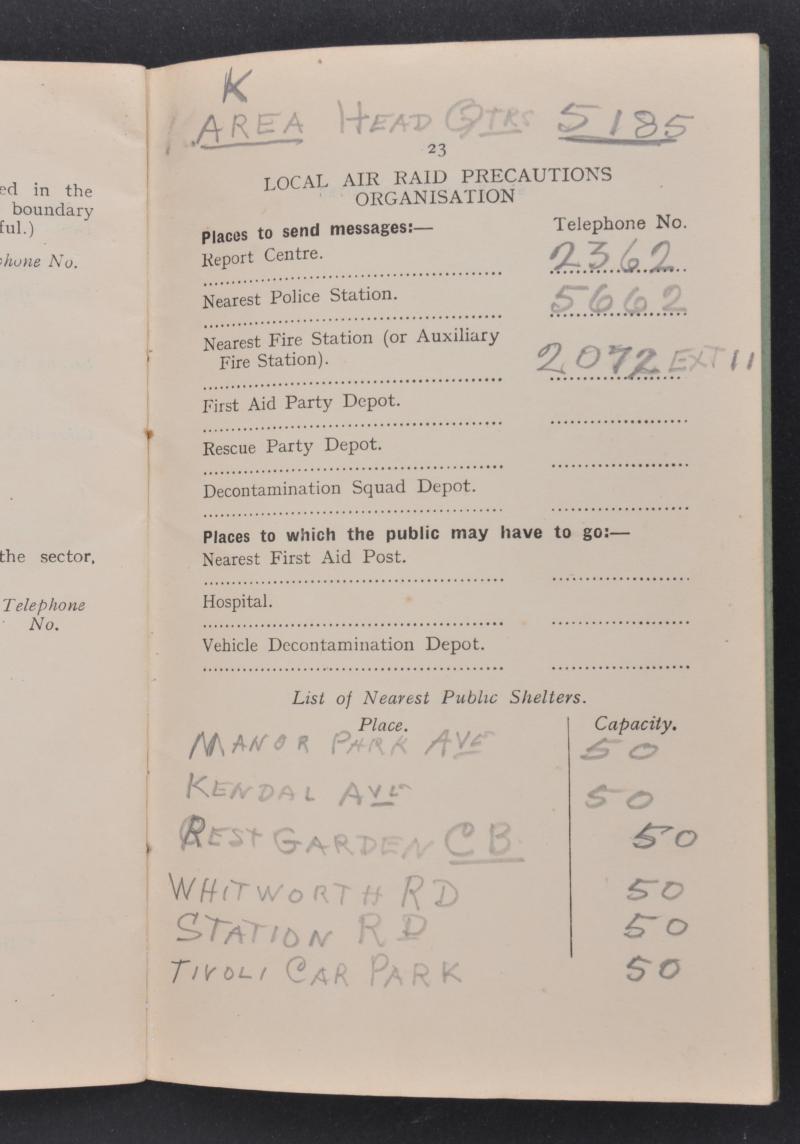 ed in the
boundary
ful.)
phone No.
the sector,
Telephone
No.
K
AREA HEAD QTRS 5185
23
LOCAL AIR RAID PRECAUTIONS
ORGANISATION
Places to send messages:— Telephone No.
Report Centre. 2362
Nearest Police Station. 5662
Nearest Fire Station (or Auxiliary
Fire Station). 2072 EXT 11
First Aid Party Depot.
Rescue Party Depot.
Decontamination Squad Depot.
Places to which the public may have to go:—
Nearest First Aid Post.
Hospital.
Vehicle Decontamination Depot.
List of Nearest Public Shelters.
Place. Capacity.
MANOR PARK AVE 50
KENDAL AVE 50
REST GARDEN CB 50
WHITWORTH RD 50
STATION RD 50
TIVOLI CAR PARK 50